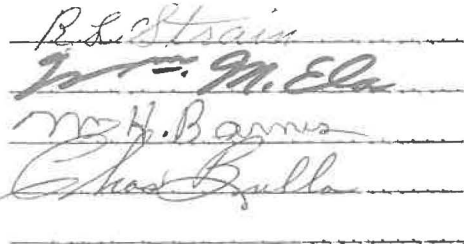 R.L. Strain
Wm. M. Ela
Wm H. Barnes
Chas Bulla